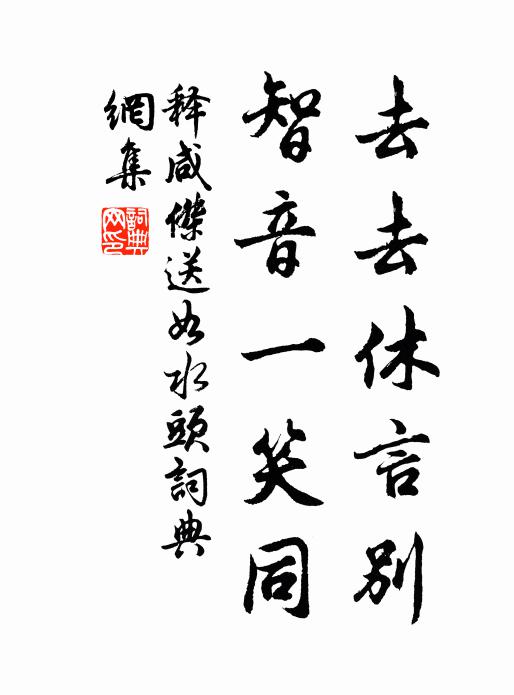 去去休言別
智音一笑同
释咸傑送如水頭詞典
網集
詞典網印